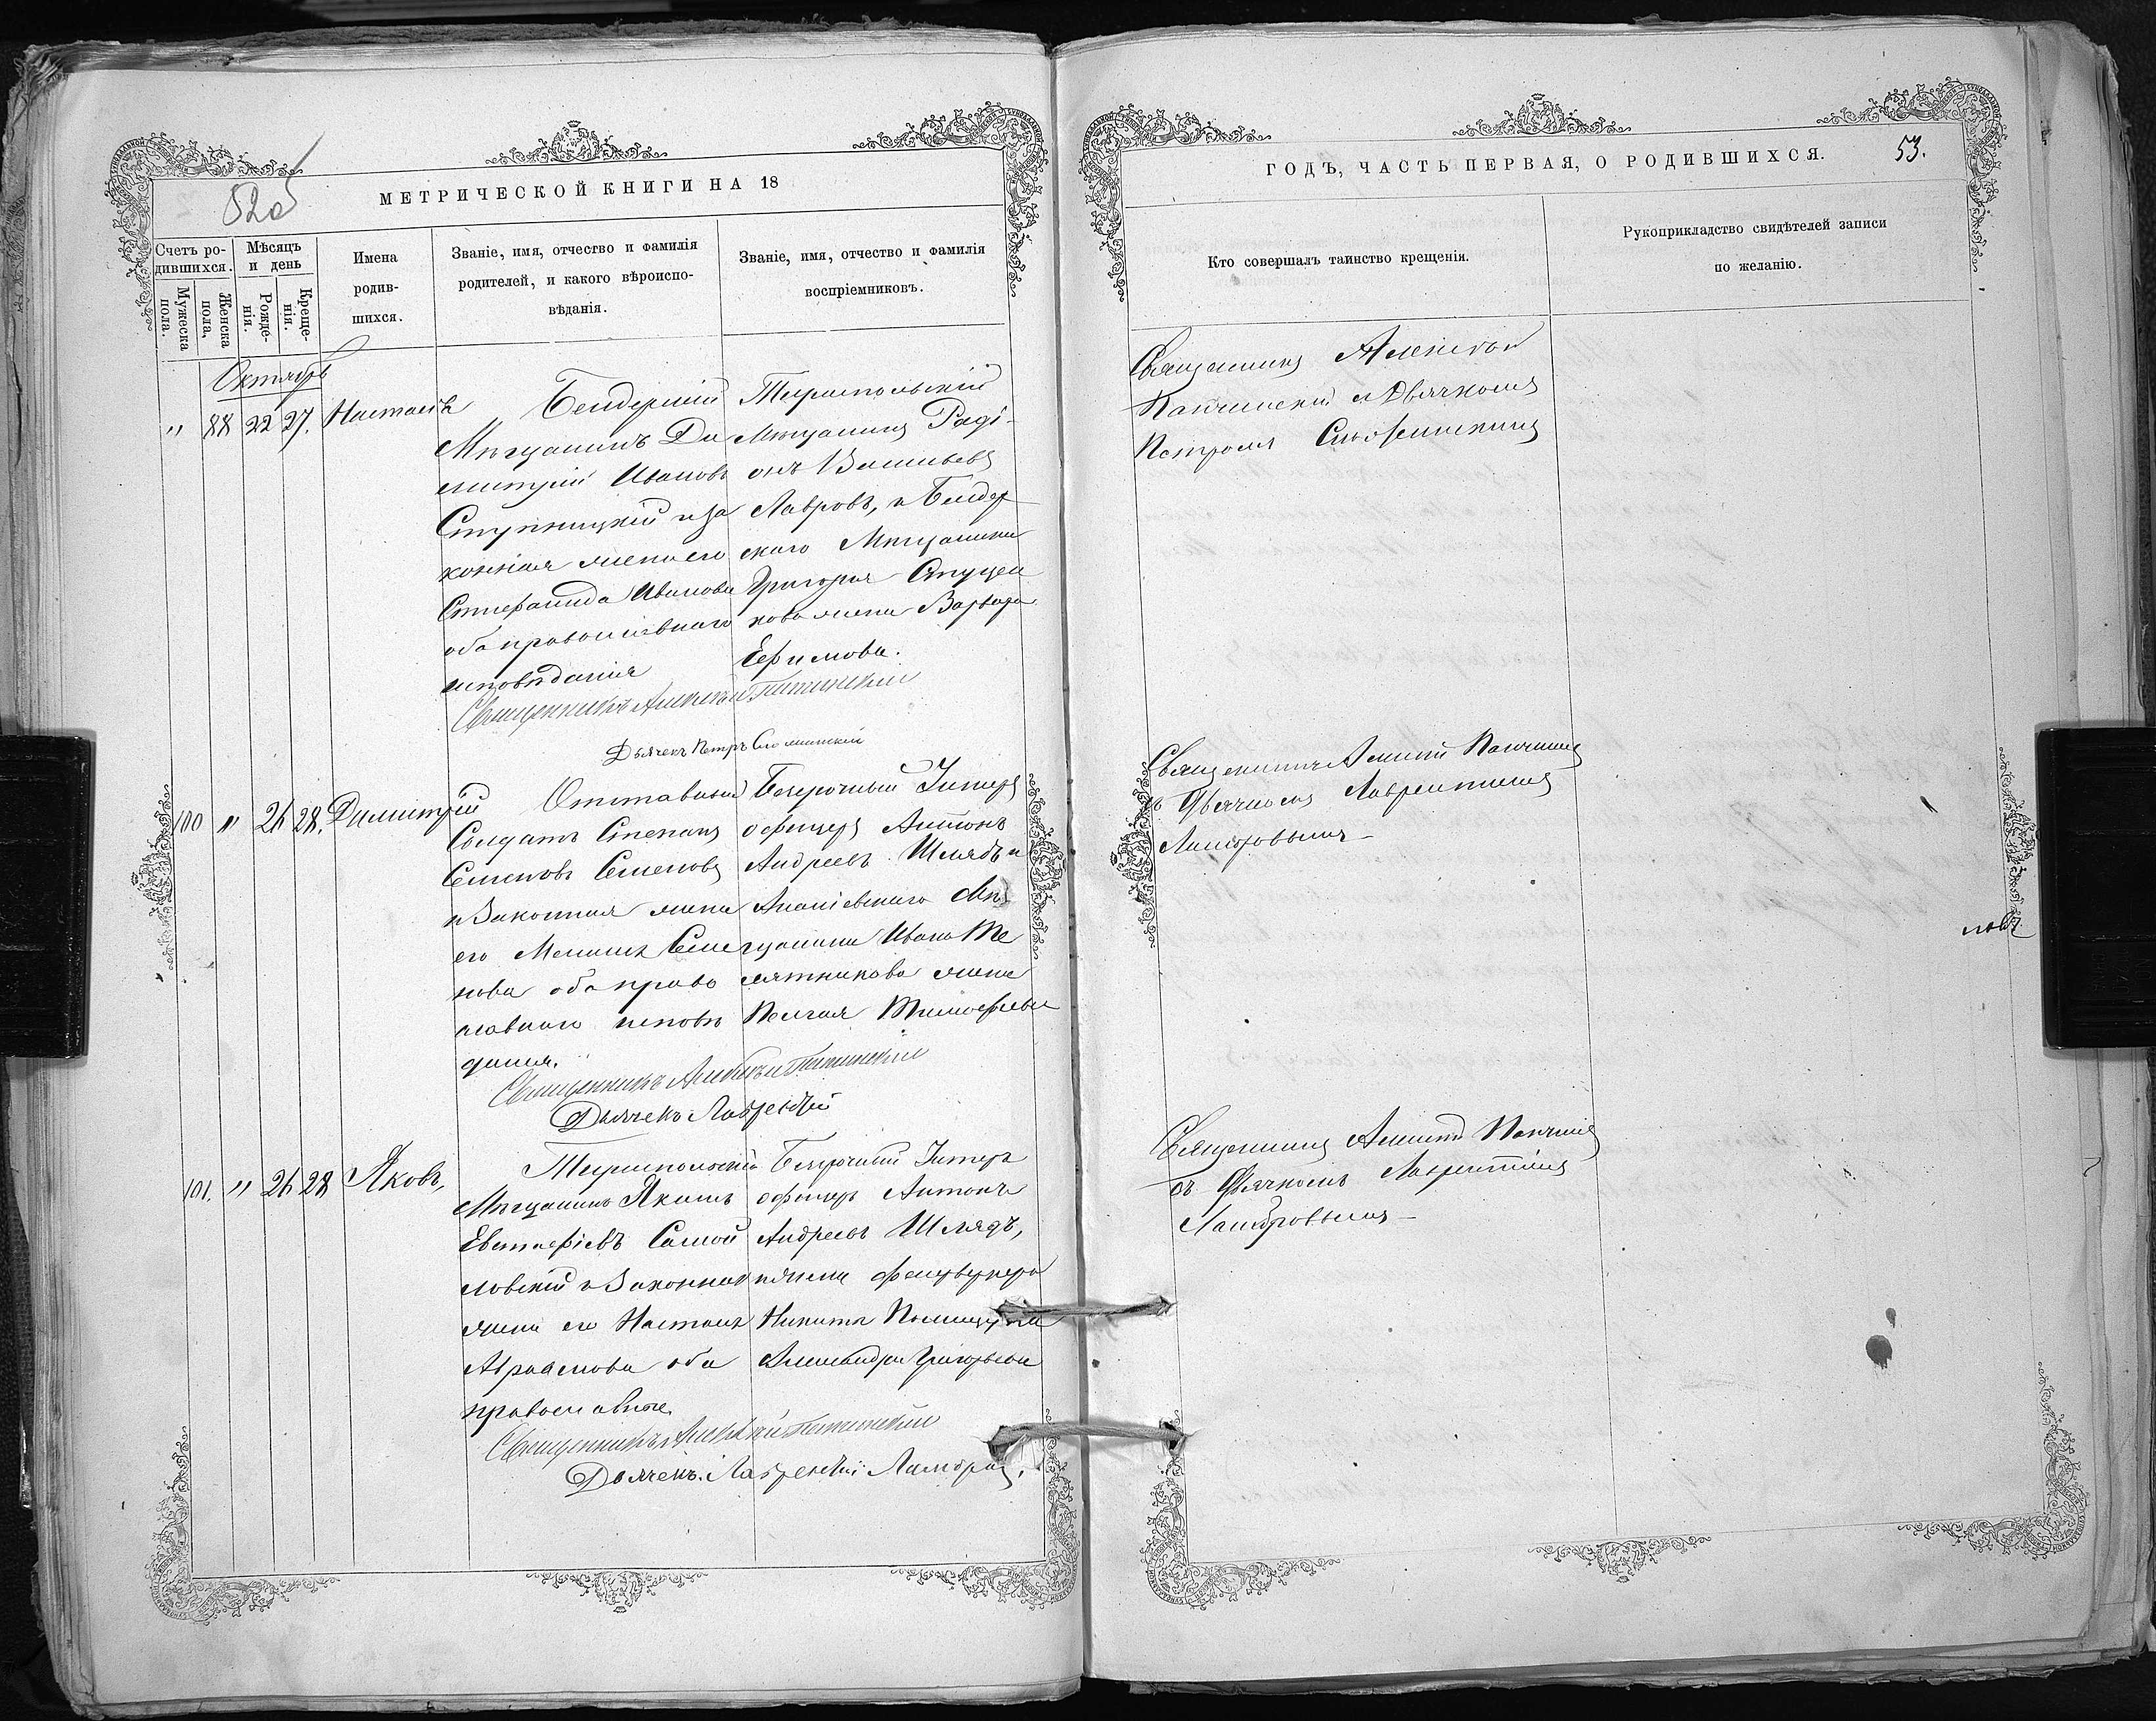 52об
МЕТРИЧЕСКОЙ КНИГИ НА 18
Счетъ ро-
дившихся.
Мужеска
пола.
Женска
пола,
Мѣсяцъ
и день
Рожде-
нія.
Креще-
нія.
Имена
родив-
шихся.
Званіе, имя, отчество и фамилія
родителей, и какого вѣроиспо-
вѣданія.
Званіе, имя, отчество и фамилія
воспріемниковъ.
Октябрь
" 88 22 27. Настасія
Бендерскій
Мѣщанинъ Ди
митрій Ивановъ
Ступницкій и за
конная жена его
Стефанида Иванова
оба православнаго
исповѣданія
Тираспольскій
Мѣщанинъ Раді-
онъ Васильевъ
Лавровъ, и Бендер
скаго Мѣщанина
Григорія
жена Варвара
Ефимова.
Священникъ Алексѣй
Дьячекъ Петръ
100 " 26 28. Димитрій
Отставный
Солдатъ Степанъ
Семеновъ Семеновъ
и Законная жена
его Семе
нова оба право
славнаго исповѣ
данія.
Безсрочный Унтеръ
офицеръ Антонъ
Андреевъ Шлядъ и
Ананіевскаго Мѣ
щанина Ивана Те
лятникова жена
Пелагія Тимофеева
Священникъ Алексѣй
Дьячекъ Лаврентій
101. " 26 28 Яковъ,
Тираспольскій
Мѣщанинъ Якимъ
Евстафіевъ Самой
ловскій и Законная
жена его Настасія
Авраамова оба
православные
Безсрочный Унтеръ
офицеръ Антонъ
Андреевъ Шлядъ,
и жена фейерверкера
Никиты
Александра Григорьева
Священникъ Алексѣй
Дьячекъ. Лаврентій
ГОДЪ, ЧАСТЬ ПЕРВАЯ, О РОДИВШИХСЯ.
53.
Кто совершалъ таинство крещенія.
Рукоприкладство свидѣтелей записи
по желанію.
Священникъ Алексѣй
съ Дьячкомъ
Петромъ
Священникъ Алексѣй
съ Дьячкомъ Лаврентіемъ
Священникъ Алексѣй
съ Дьячкомъ Лаврентіемъ